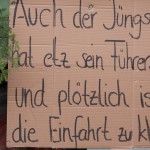 Auch der Jüngs
hat etz sein Führers
und plötzlich is
die Einfahrt zu kl